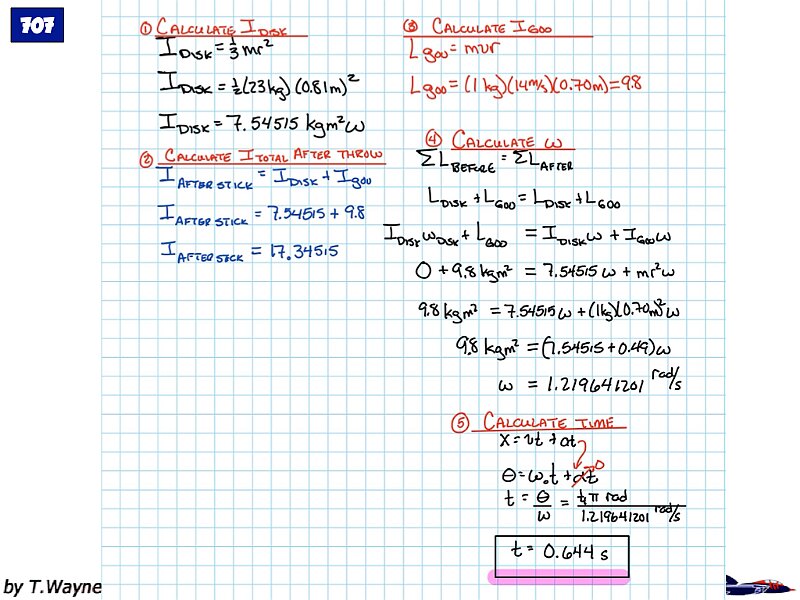 707
① CALCULATE I DISK
I DISK = 1/3 mr²
I DISK = 1/2(23kg)(0.81m)²
I DISK = 7.54515 kgm²ω
② CALCULATE I TOTAL AFTER THROW
I AFTER STICK = I DISK + I goo
I AFTER STICK = 7.54515 + 9.8
I AFTER STICK = 17.34515
③ CALCULATE I GOO
L goo = mvr
L goo = (1kg)(14m/s)(0.70m)=9.8
④ CALCULATE ω
ΣL BEFORE = ΣL AFTER
L DISK + L GOO = L DISK + L GOO
I DISK ω DISK + L GOO = I DISK ω + I GOO ω
0 + 9.8 kgm² = 7.54515 ω + mr²ω
9.8 kgm² = 7.54515ω + (1kg)(0.70m)²ω
9.8 kgm² = (7.54515 + 0.49)ω
ω = 1.219641201 rad/s
⑤ CALCULATE TIME
X = vt + at
θ = ω₀t + αt 0
t = θ/ω = ¼π rad / 1.219641201 rad/s
t = 0.644 s
by T.Wayne